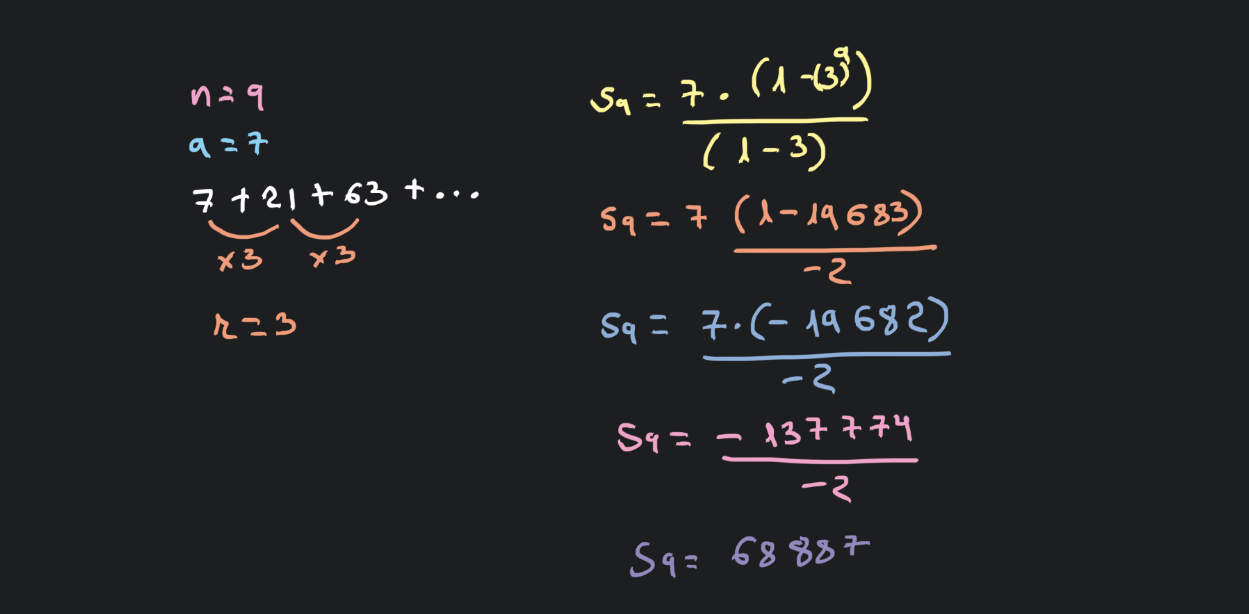 n = 9
a = 7
7 + 21 + 63 + ...
x3 x3
r = 3
S9 = 7 . (1 - (3)^9) / (1 - 3)
S9 = 7 (1 - 19 683) / -2
S9 = 7 . (- 19 682) / -2
S9 = - 137 774 / -2
S9 = 68 887